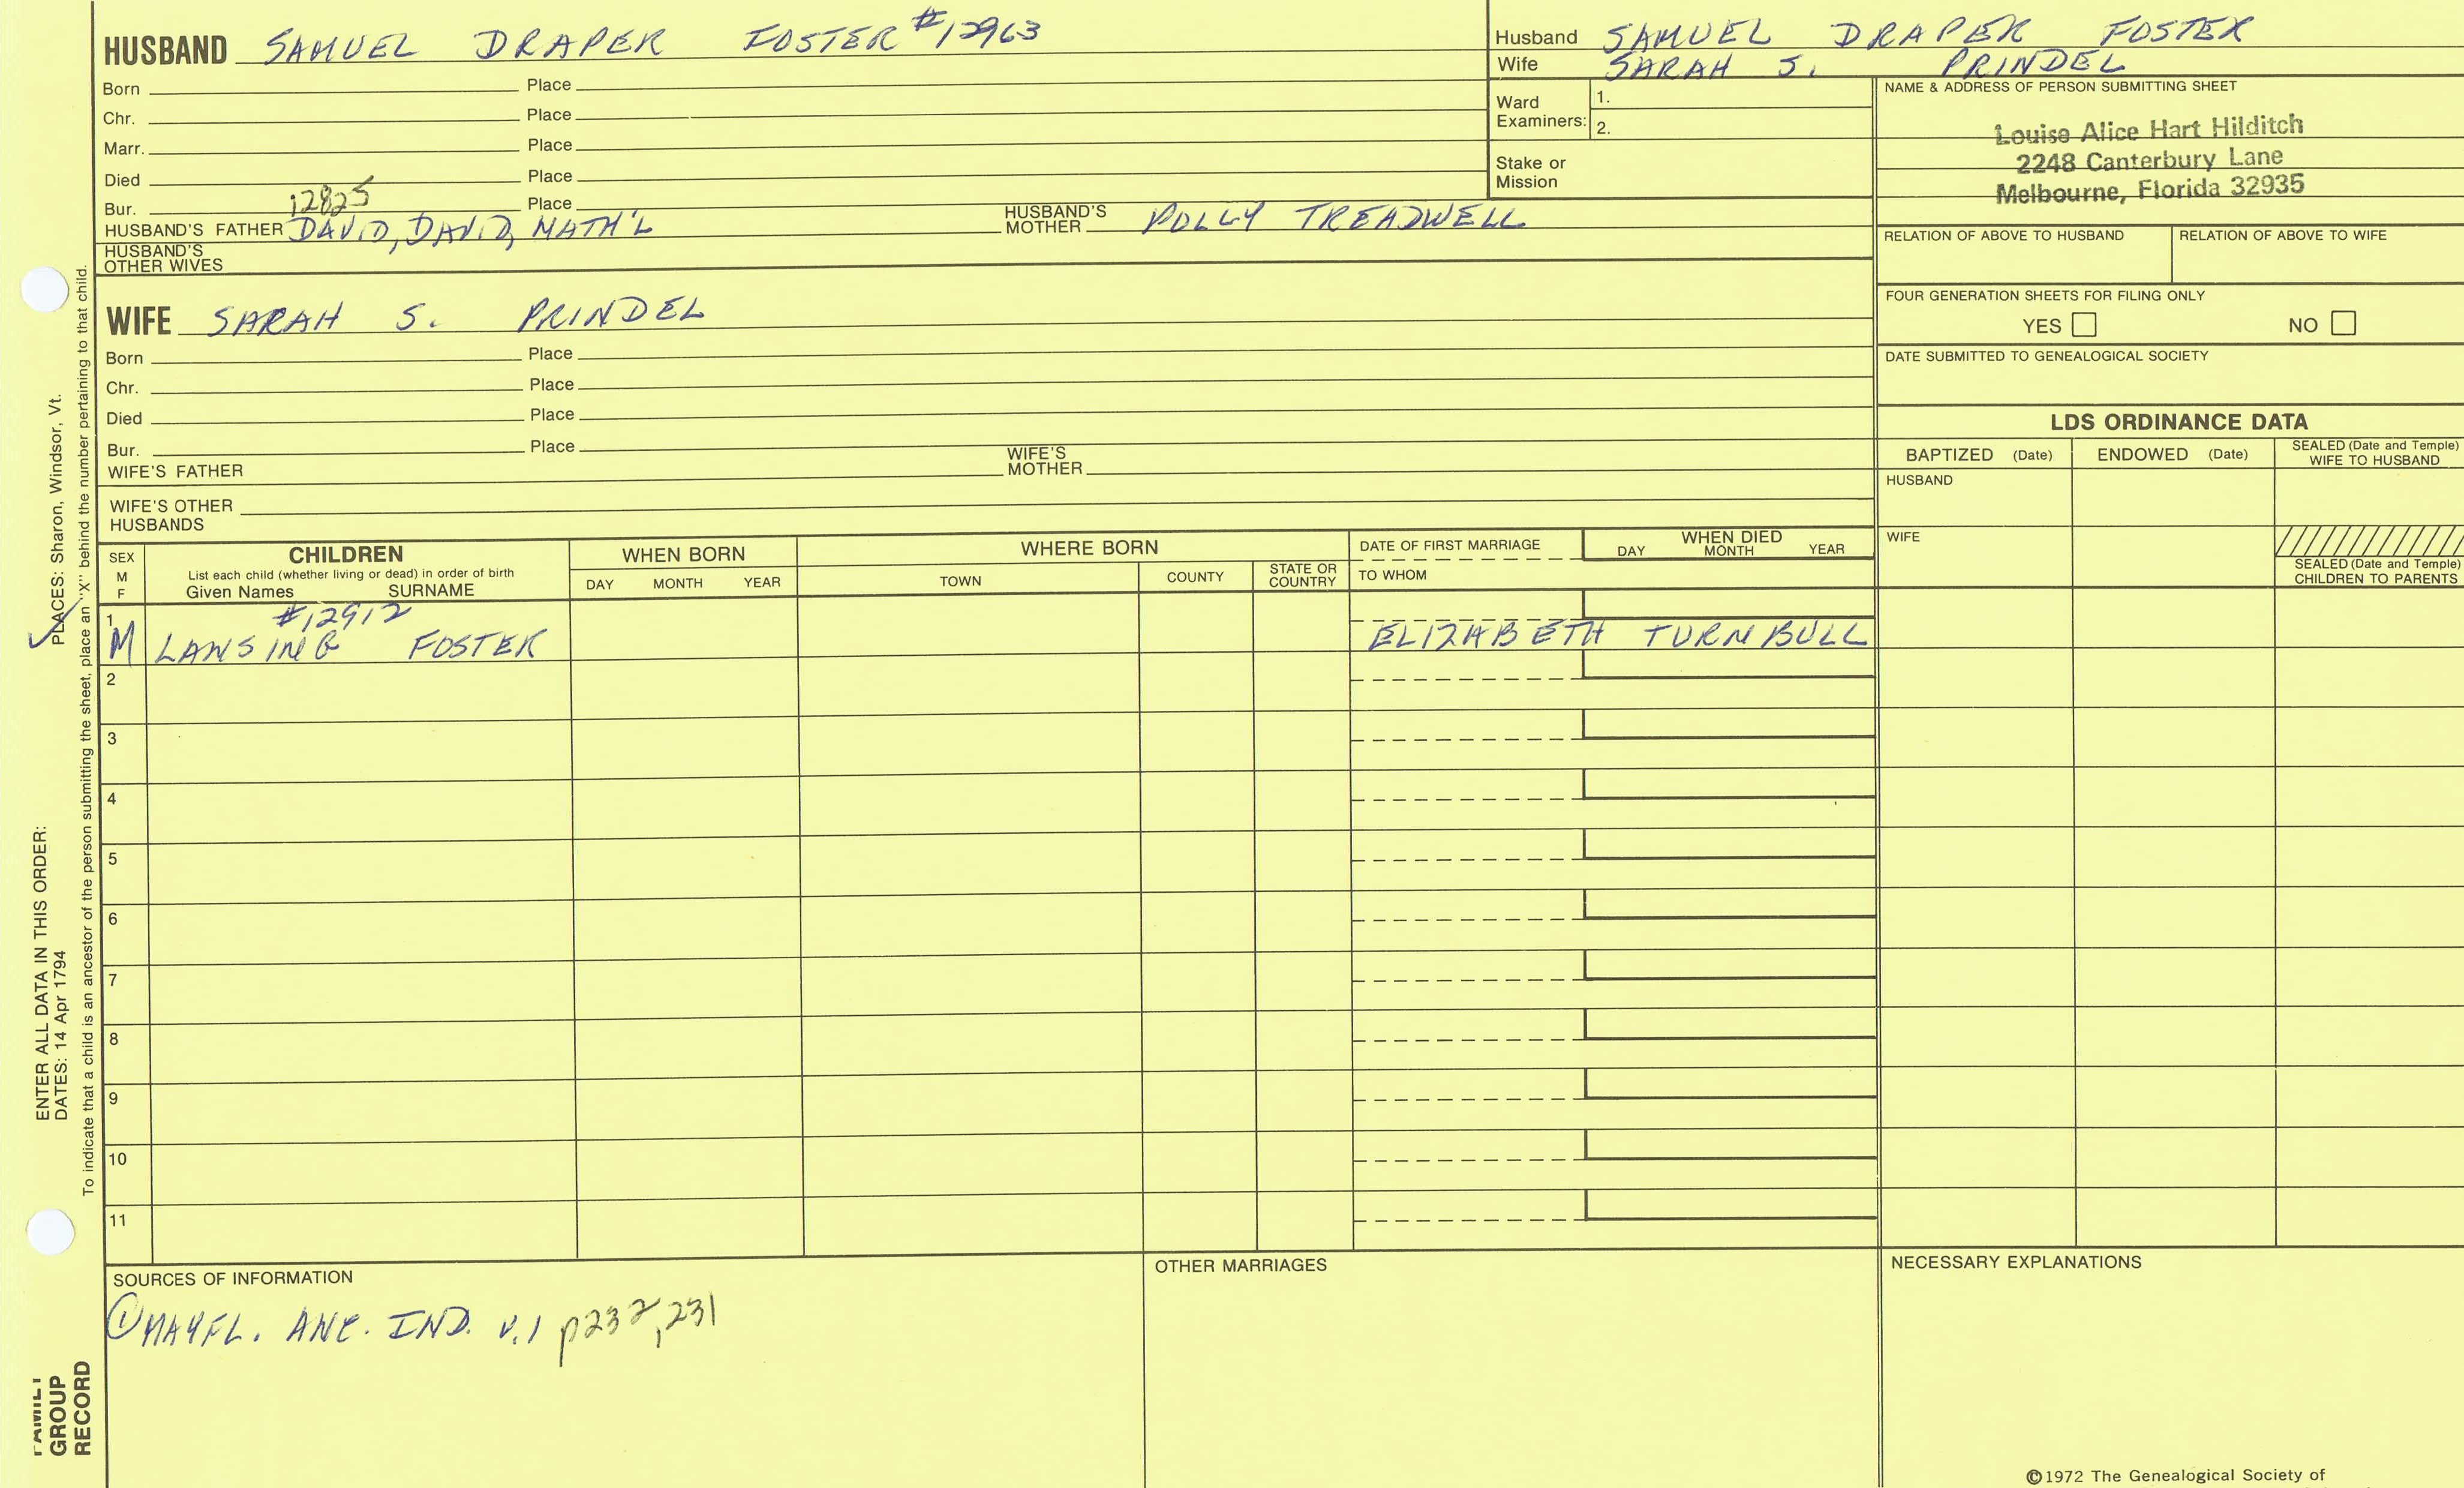 HUSBAND SAMUEL DRAPER FOSTER #12963
Born Place
Chr. Place
Marr. Place
Died Place
Bur. 12825 Place
HUSBAND'S FATHER DAVID, DAVID, NATH'L HUSBAND'S MOTHER POLLY TREADWELL
HUSBAND'S OTHER WIVES
WIFE SARAH S. PRINDEL
Born Place
Chr. Place
Died Place
Bur. Place
WIFE'S FATHER WIFE'S MOTHER
WIFE'S OTHER HUSBANDS
Husband SAMUEL DRAPER FOSTER
Wife SARAH S. PRINDEL
Ward Examiners: 1.
2.
Stake or Mission
NAME & ADDRESS OF PERSON SUBMITTING SHEET
Louise Alice Hart Hilditch
2248 Canterbury Lane
Melbourne, Florida 32935
RELATION OF ABOVE TO HUSBAND RELATION OF ABOVE TO WIFE
FOUR GENERATION SHEETS FOR FILING ONLY
YES NO
DATE SUBMITTED TO GENEALOGICAL SOCIETY
LDS ORDINANCE DATA
BAPTIZED (Date) ENDOWED (Date) SEALED (Date and Temple) WIFE TO HUSBAND
HUSBAND
WIFE
SEALED (Date and Temple) CHILDREN TO PARENTS
SEX M F
CHILDREN
List each child (whether living or dead) in order of birth
Given Names SURNAME
WHEN BORN
DAY MONTH YEAR
WHERE BORN
TOWN COUNTY STATE OR COUNTRY
DATE OF FIRST MARRIAGE
TO WHOM
WHEN DIED
DAY MONTH YEAR
1 #12912
M LANSING FOSTER ELIZABETH TURNBULL
2
3
4
5
6
7
8
9
10
11
SOURCES OF INFORMATION
① MAYFL. ANC. IND. v.1 p232, 231
OTHER MARRIAGES
NECESSARY EXPLANATIONS
©1972 The Genealogical Society of
ENTER ALL DATA IN THIS ORDER:
DATES: 14 Apr 1794
PLACES: Sharon, Windsor, Vt.
To indicate that a child is an ancestor of the person submitting the sheet, place an "X" behind the number pertaining to that child.
FAMILY
GROUP
RECORD